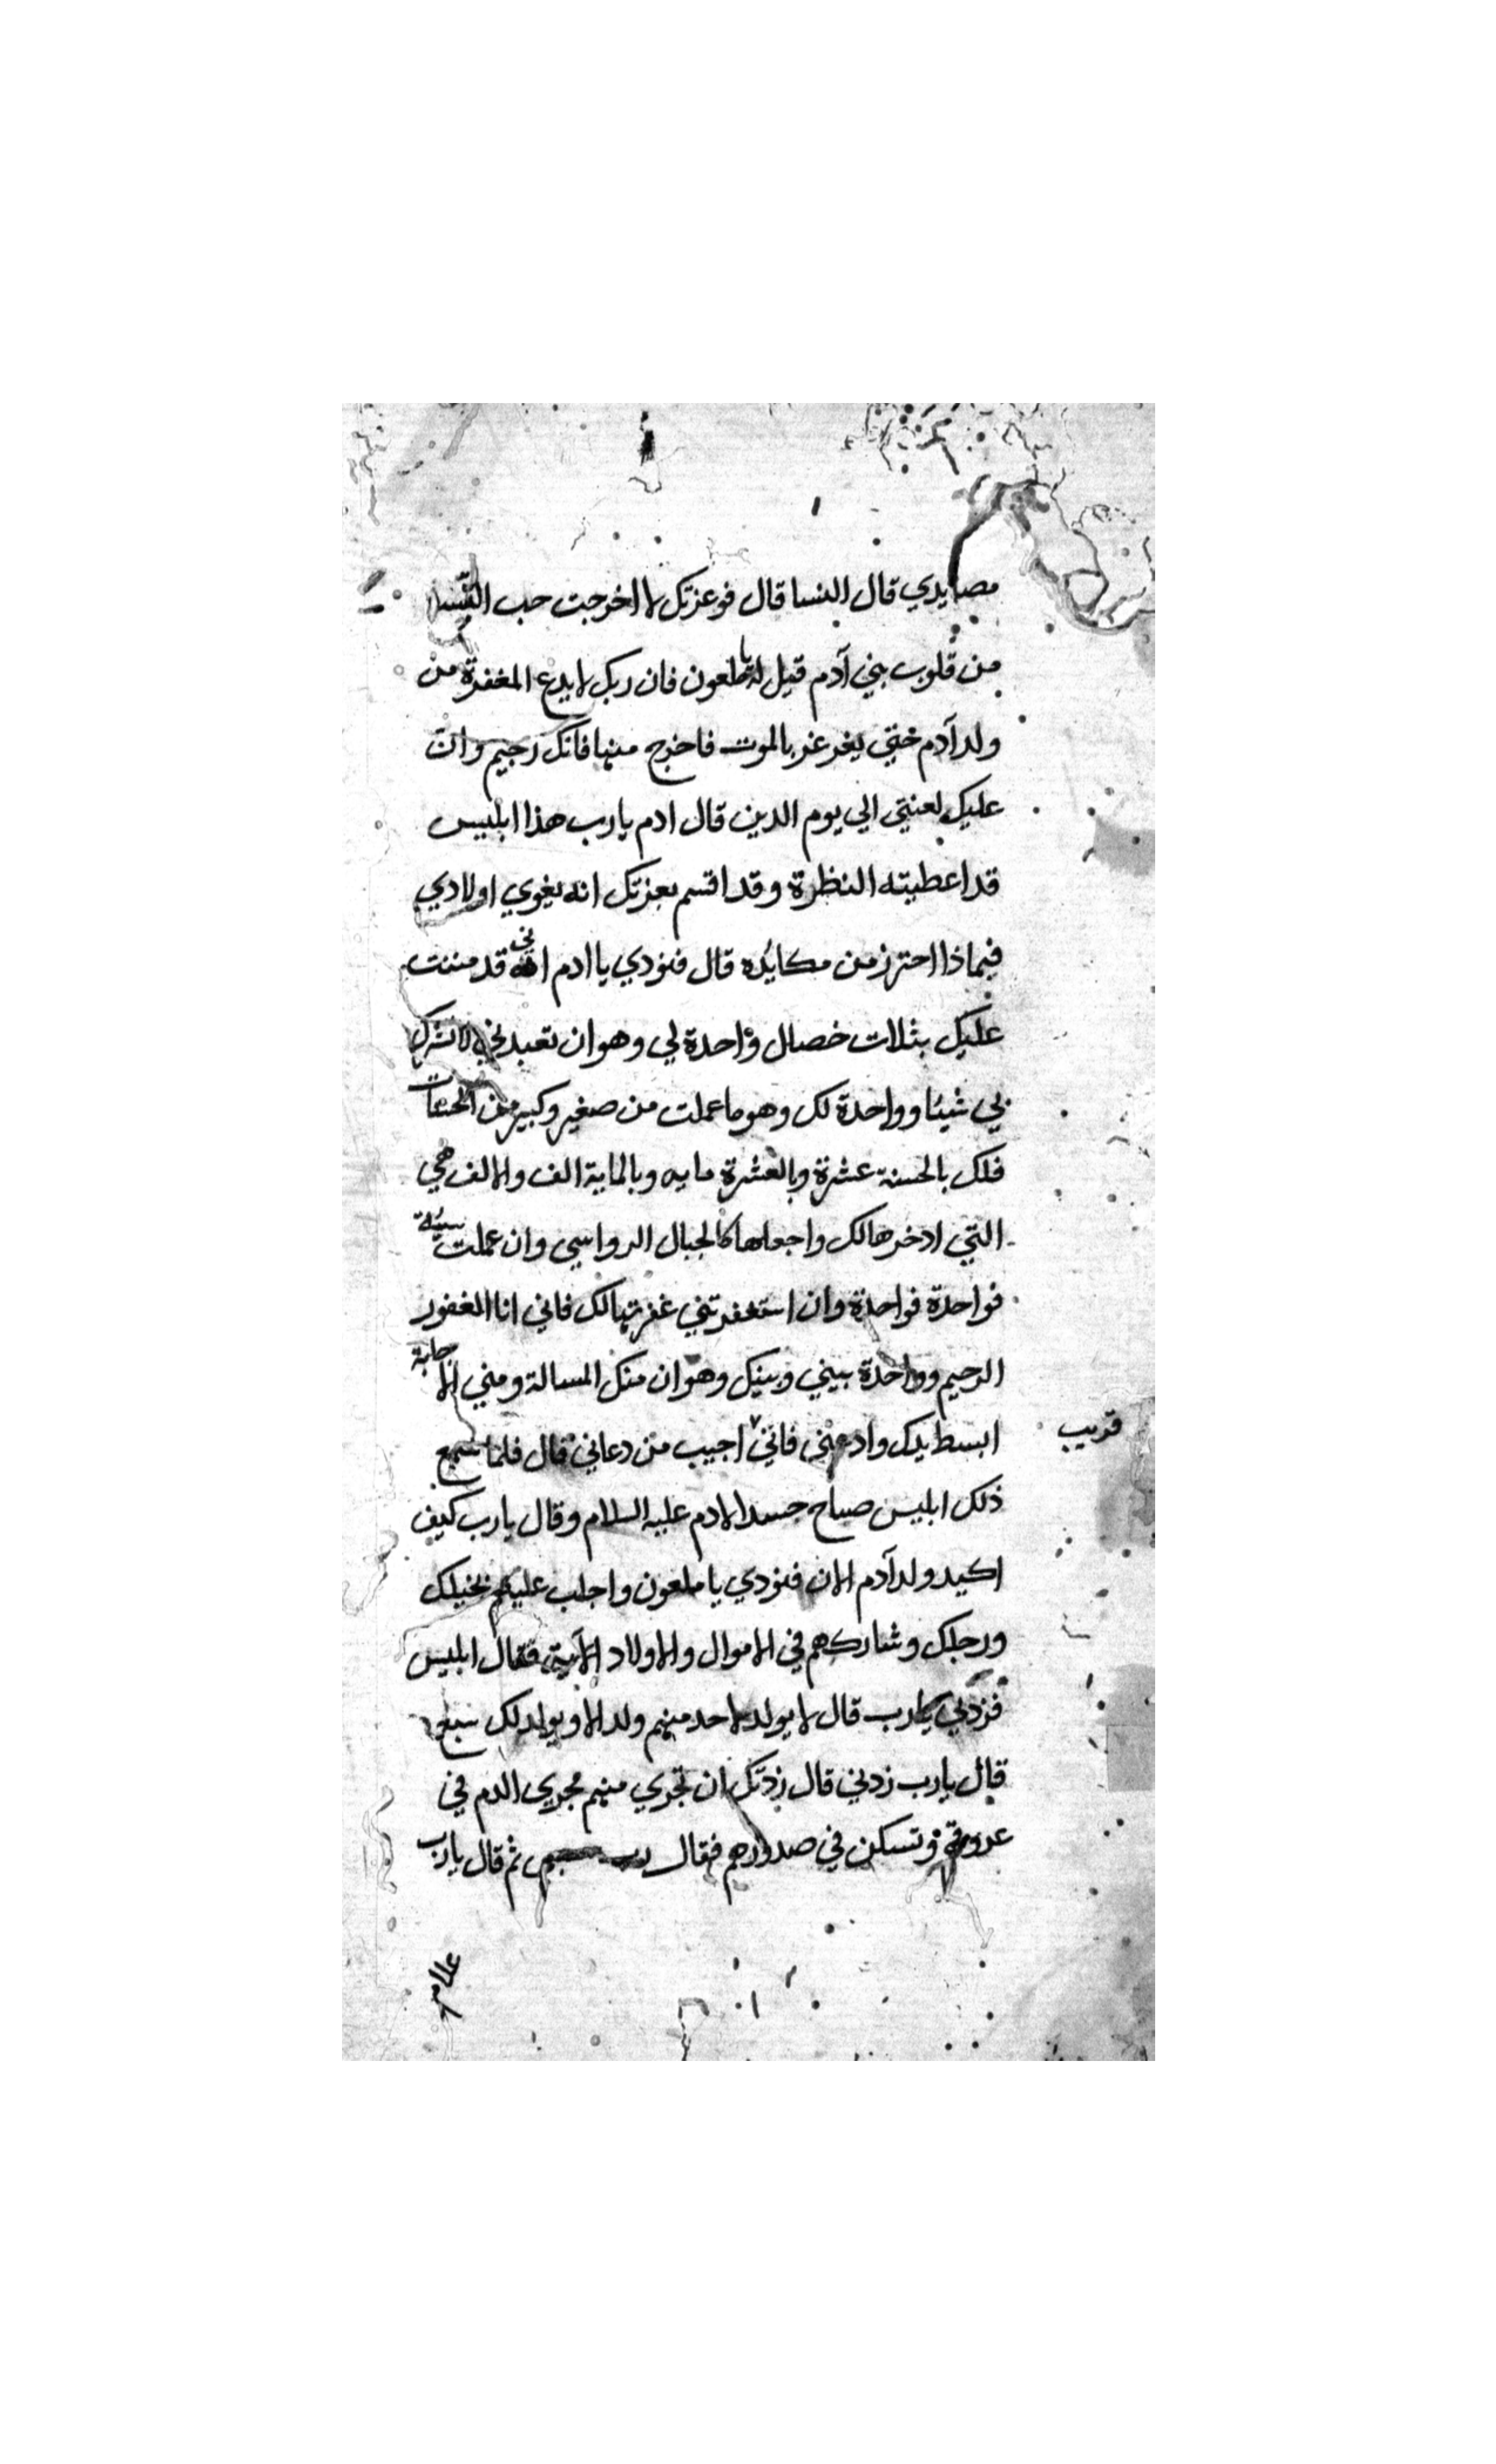 مصايدي قال النسا قال فوعزتك لا اخرجت حب النسا
من قلوب بني آدم قيل له يا ملعون فان ربك لا يدع المغفرة من
ولد آدم حتي يغرغر بالموت فاخرج منها فانك رجيم وان
عليك لعنتي الي يوم الدين قال ادم يا رب هذا ابليس
قد اعطيته النظرة وقد اقسم بعزتك انه يغوي اولادي
فبماذا احترز من مكائده قال فنودي يا ادم اني قد مننت
عليك بثلاث خصال واحدة لي وهو ان تعبدني لا تشرك
بي شيئا وواحدة لك وهو ما عملت من صغير وكبير من الحسنات
فلك بالحسنة عشرة وبالعشرة مايه وبالماية الف والالف هي
التي ادخرها لك واجعلها كالجبال الرواسي وان عملت سيئة
فواحدة فواحدة وان استغفرتني غفرتها لك فاني انا الغفور
الرحيم وواحدة بيني وبينك وهو ان منك المسالة ومني الاجابة
ابسط يدك وادعني فاني اجيب من دعاني قال فلما سمع
قريب
ذلك ابليس صاح حسدا لادم عليه السلام وقال يا رب كيف
اكيد ولد آدم الان فنودي يا ملعون واجلب عليهم بخيلك
ورجلك وشاركهم في الاموال والاولاد الآية فقال ابليس
فزدني يا رب قال لا يولد لاحد منهم ولد الا ويولد لك سبع
قال يا رب زدني قال زدتك ان تجري منهم مجري الدم في
عروقهم وتسكن في صدورهم فقال رب ثم قال يا رب
علام